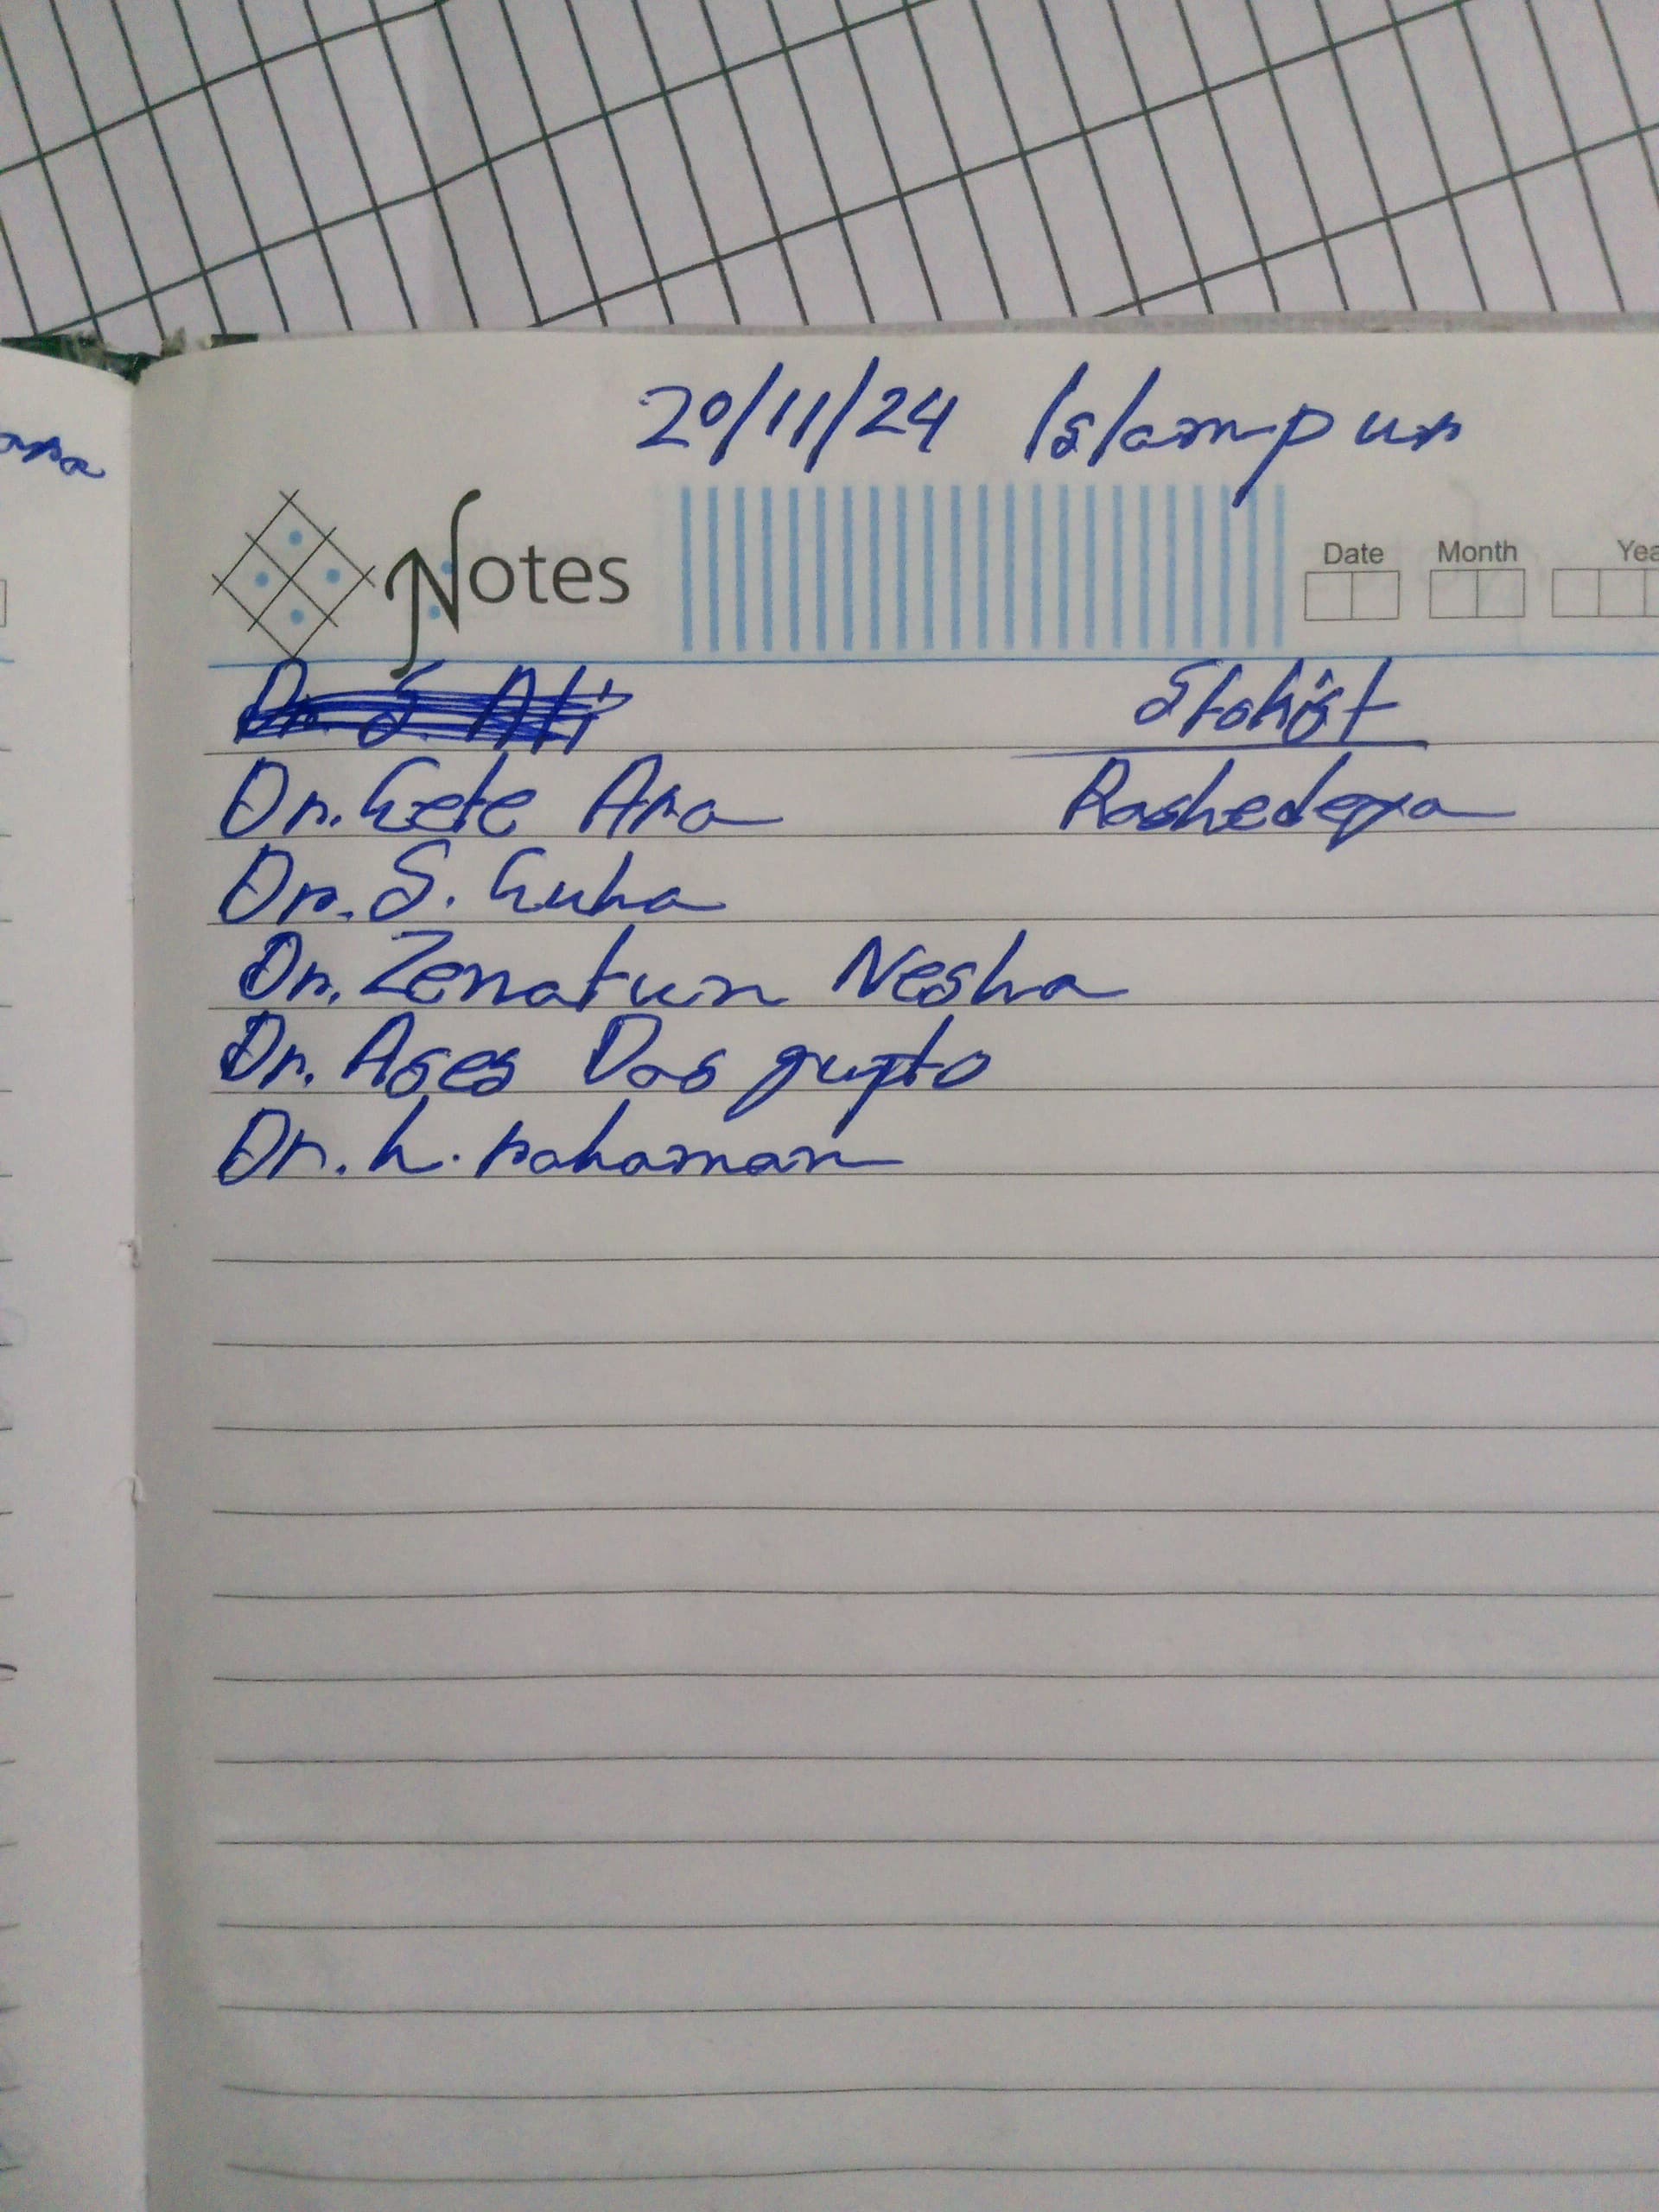 20/11/24 Islampur
ara
Notes
Date Month Yea
Dr. S. Ali
Stokist
Dr. Gete Ara
Rashedeya
Dr. S. Guha
Dr. Zenatun Nesha
Dr. Ases Das gupta
Dr. h. rahaman